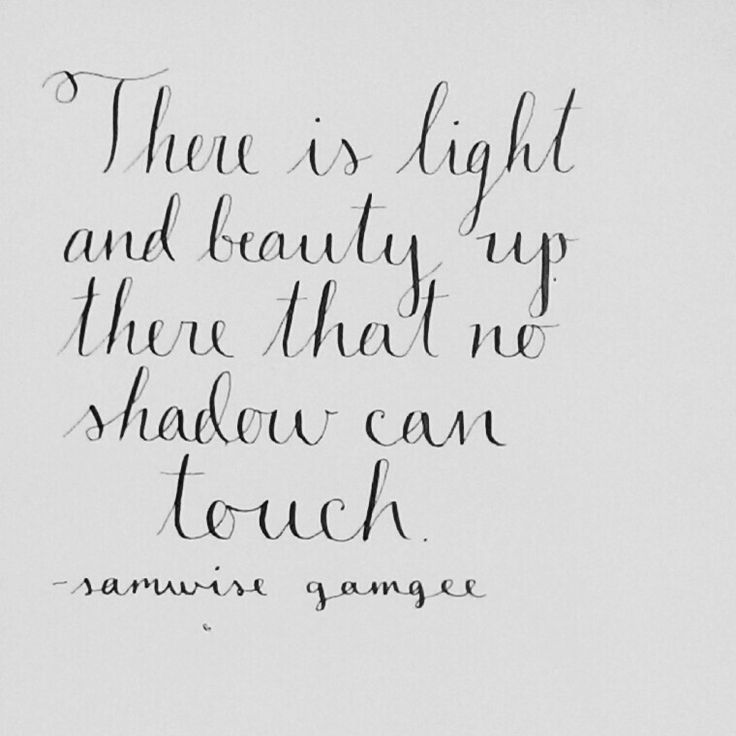 There is light
and beauty up
there that no
shadow can
touch.
-samwise gamgee